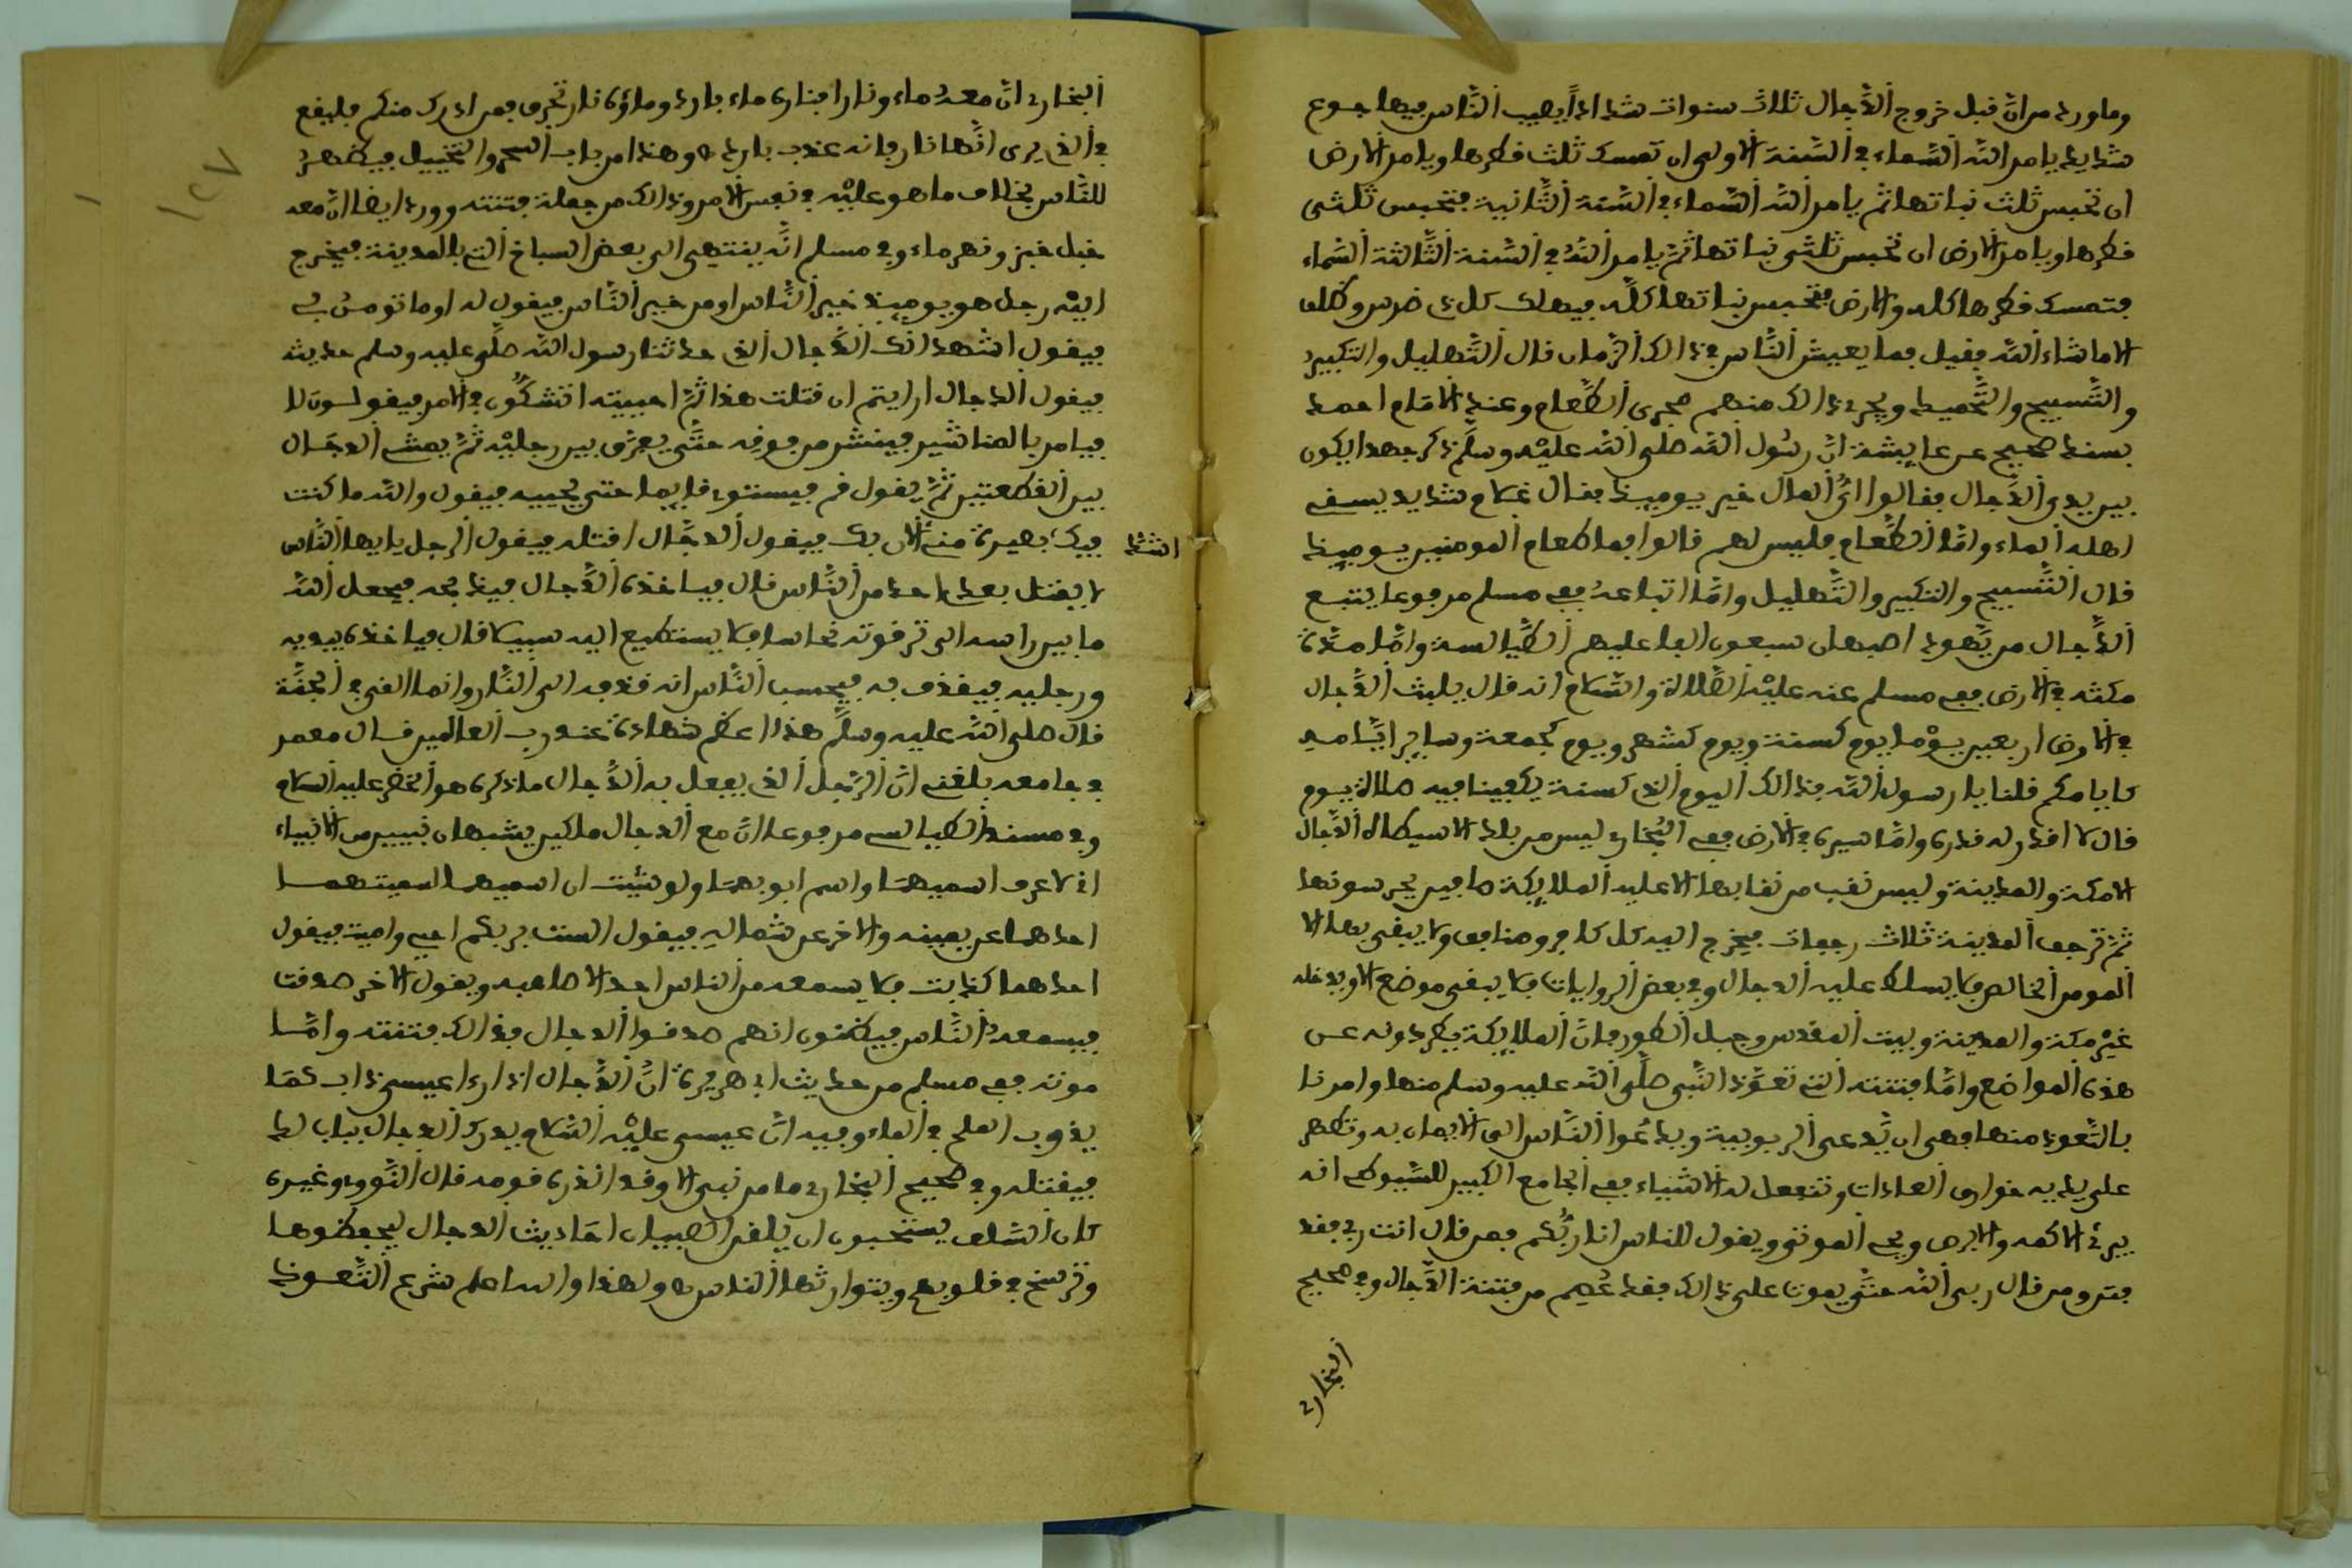 وما ورد من ان قبل خروج الدَّجال ثلاث سنوات شدادًا يصيب النَّاس فيها جوع
شديد يامر الله السَّماء في السَّنة الاولى ان تمسك ثلث قطرها ويامر الارض
ان تحبس ثلث نباتها ثم يامر الله السَّماء في السَّنة الثَّانية فتحبس ثلثى
قطرها ويامر الارض ان تحبس ثلثى نباتها ثم يامر اللهُ في السَّنة الثَّالثة السَّماء
فتمسك قطرها كله والارض فتحبس نباتها كلَّه فيهلك كل ذى ضرس وظلف
الا ما شاء الله فقيل بما يعيش النَّاس في ذالك الزَّمان قال التَّهليل والتكبير
والتَّسبيح والتَّحميد ويجرى ذالك منهم مجرى الطَّعام وعند الامام احمد
بسند صحيح عن عايشة انَّ رسُول الله صلى الله عليْه وسلَّم ذكر جهدا يكون
بين يدي الدَّجال فقالوا ائُّ المال خير يوميذ فقال غلام شديد يسقى
اهله الماء وامَّا الطَّعام فليس لهم قالوا فما طعام المومنين يوميذ
قال التَّسبيح والتكبير والتَّهليل وامَّا اتباعهُ ففي مسلم مرفوعا يتبع
الدَّجال من يَّهود اصبهان سبعون الفا عليهم الطَّيالسة وامَّا مدَّة
مكثه في الارض ففي مسلم عنه عليْه الصَّلاة والسَّلام انه قال يلبث الدَّجال
في الارض اربعين يوْما يوم كسنة ويوم كشهر ويوم كجمعة وساير ايَّامه
كايامكم قلنا يا رسول الله فذالك اليوم الذى كسنة يكفينا فيه صلاة يوم
قال لا اقدر له قدره وامَّا سيره في الارض ففي البُخارى ليس من بلد الا سيطاه الدَّجال
الا مكة والمدينة وليس نقب من نقابها الا عليه الملايكة صافين يحرسونها
ثمَّ ترجف المدينة ثلاث رجفات فيخرج اليه كل كافر ومنافق ولا يبقى بها الا
المومن الخالص فلا يسلط عليه الدجال وفي بعض الروايات فلا يبقى موضع الا ويدخله
غيْر مكة والمدينة وبيت المقدس وجبل الطور فانَّ الملايكة يطردونه عن
هذه المواضع وامَّا فتنته التى تعوَّذ النَّبى صلَّى الله عليه وسلم منها وامرنا
بالتَّعوذ منها فهى ان يَّدعى الربوبية ويدعُوا النَّاس الى الايمان به وتظهر
على يديه خوارق العادات وتنفعل له الاشياء ففي الجامع الكبير للسَّيوطى انه
يبرئ الاكمه والابرص ويحى الموتى ويقول للناس انا ربُّكم فمن قال انت ربى فقد
فتن ومن قال ربى الله حتَّى يموت على ذالك فقد عُصِم من فتنة الدَّجال وفي صحيح
البخارى
البخارى انَّ معهُ ماء ونارا فناره ماء بارد وماؤه نار تحرق فمن ادرك منكم فليقع
في الذى يرى انَّها نار فانه عذب بارد ه وهذا من باب السحر والتخييل فيظهر
للنَّاس بخلاف ما هو عليْه في نفس الامر وذالك من جملة فتنته وورد ايضا انَّ معه
جبل خبز ونهر ماء وفي مسلم انَّه ينتهى الى بعض السباخ التى بالمدينة فيخرج
اليْه رجل هو يوميذ خير النَّاس او من خير النَّاس فيقول له اوما تومن بى
فيقول اشهد انك الدَّجال الذى حدثنا رسول الله صلَّى عليه وسلم حديثه
فيقول الدجال ارايتم ان قتلت هذا ثمَّ احييته اتشكُّون في الامر فيقولون لا
فيامر بالمناشير فينشر من فوقه حتَّى يفرَّق بين رجليْه ثمَّ يمشى الدجَّال
بين القطعتين ثمَّ يقول قم فيستوى قايما حتى يحييه فيقول والله ما كنت
اشدَّ
فيك بصيرة منى الان بك فيقول الدجَّال اقتله فيقول الرجل يا ايها النَّاس
لا يفتل بعد احد من النَّاس قال فياخذه الدَّجال فيذبحه فيجعل الله
ما بين راسه الى ترقوته نحاسا فلا يستطيع اليه سبيلا قال فياخذه بيديه
ورجليه فيقذف به فيحسب النَّاس انه قذفه الى النَّار وانما القى في الجنَّة
قال صلى الله عليه وسلَّم هذا اعظم شهادة عند رب العالمين قال معمر
في جامعه بلغنى انَّ الرَّجل الذى يفعل به الدَّجال ما ذكره هو الخضر عليه السلام
وفي مسند الطيالسى مرفوعا انَّ مع الدجال ملكين يشبهان نبيين من الانبياء
انى لاعرف اسميهما واسم ابويهما ولو شئت ان اسميهما لسميتهما
احدهما عن يمينه والاخر عن شماله فيقول الست بربكم احيى واميت فيقول
احدهما كذبت فلا يسمعه من الناس احد الا صاحبه ويقول الاخر صدقت
فيسمعه النَّاس فيظنون انهم صدقوا الدجال فذالك فتنته وامَّا
موته ففي مسلم من حديث ابى هريرة انَّ الدَّجال اذا راءا عيسى ذاب كما
يذوب الملح في الماء وفيه انَّ عيسى عليْه السَّلام يدرك الدجال بباب لد
فيقتله وفي صحيح البخارى ما من نبى الا وقد انذره قومه قال النَّووى وغيره
كان السَّلف يستحبون ان يلقن الصبيان احاديث الدجال ليحفظوها
وترسخ في قلوبهم ويتوارثها الناس ه ولهذا والله اعلم شرع التَّعوذ